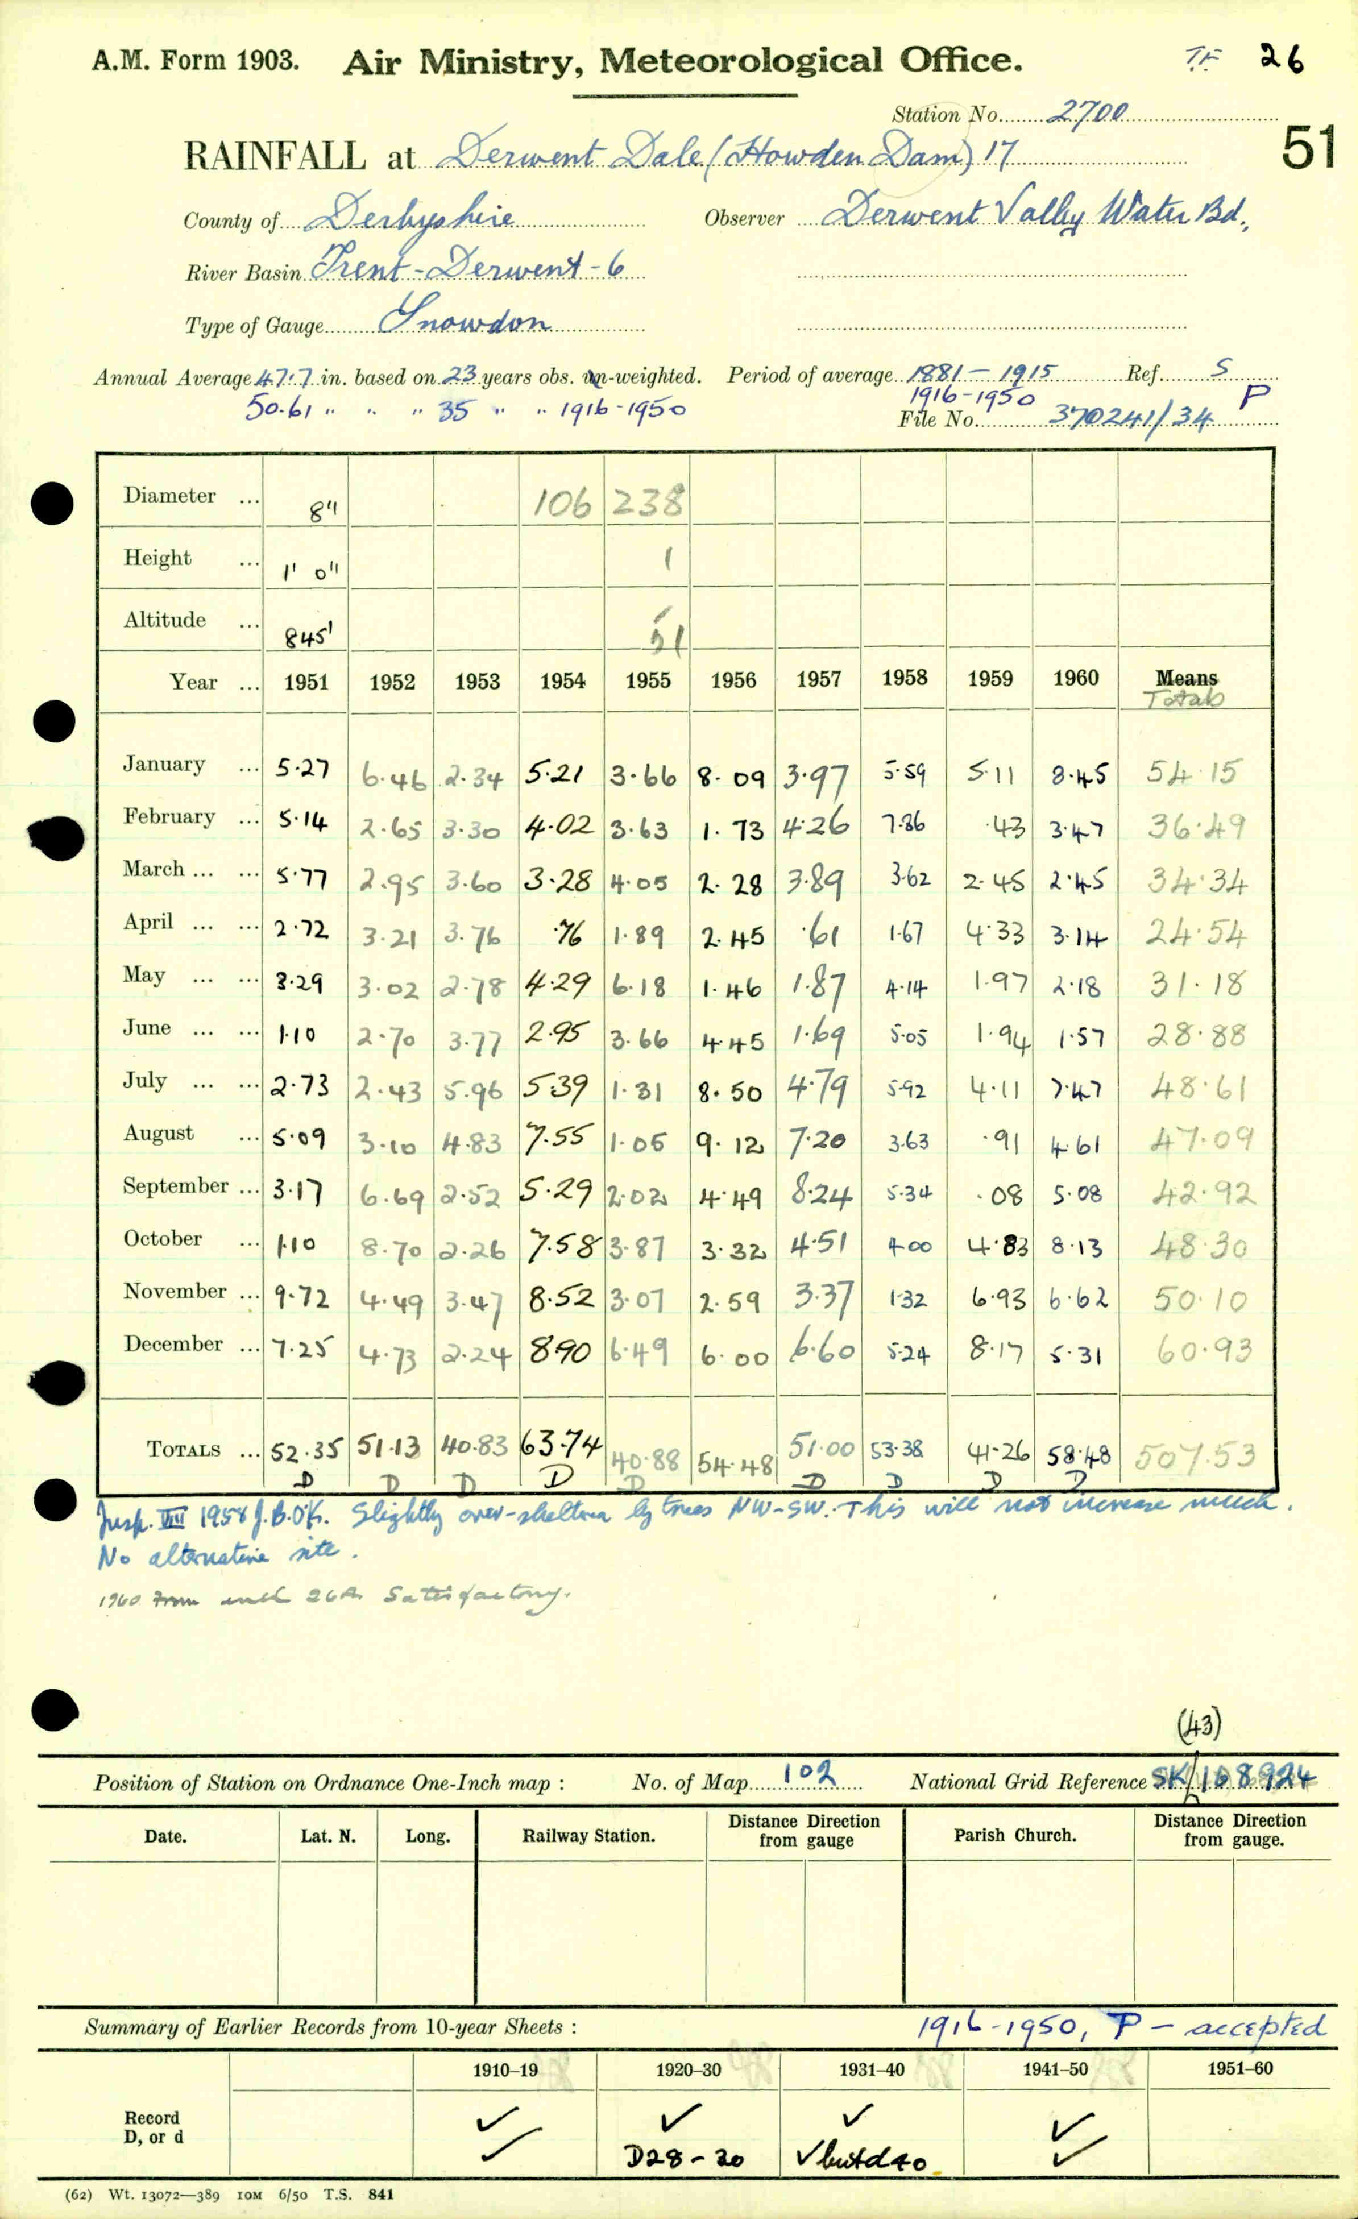 A.M. Form 1903. Air Ministry, Meteorological Office. T.F. 26
Station No. 2700
51
RAINFALL at Derwent Dale (Howden Dam) 17
County of Derbyshire Observer Derwent Valley Water Bd.
River Basin Trent-Derwent-6
Type of Gauge Snowdon
Annual Average 47.7 in. based on 23 years obs. un-weighted. Period of average 1881-1915 Ref. S
50.61 " " " 35 " " 1916-1950 1916-1950 P
File No. 370241/34
Diameter ... 8" 106 238
Height ... 1' 0" 1
Altitude ... 845' 51
Year ... 1951 1952 1953 1954 1955 1956 1957 1958 1959 1960 Means
Totals
January ... 5.27 6.46 2.34 5.21 3.66 8.09 3.97 5.59 5.11 8.45 54.15
February ... 5.14 2.65 3.30 4.02 3.63 1.73 4.26 7.86 .43 3.47 36.49
March ... ... 5.77 2.95 3.60 3.28 4.05 2.28 3.89 3.62 2.45 2.45 34.34
April ... ... 2.72 3.21 3.76 .76 1.89 2.45 .61 1.67 4.33 3.14 24.54
May ... ... 3.29 3.02 2.78 4.29 6.18 1.46 1.87 4.14 1.97 2.18 31.18
June ... ... 1.10 2.70 3.77 2.95 3.66 4.45 1.69 5.05 1.94 1.57 28.88
July ... ... 2.73 2.43 5.96 5.39 1.31 8.50 4.79 5.92 4.11 7.47 48.61
August ... 5.09 3.10 4.83 7.55 1.05 9.12 7.20 3.63 .91 4.61 47.09
September ... 3.17 6.69 2.52 5.29 2.02 4.49 8.24 5.34 .08 5.08 42.92
October ... 1.10 8.70 2.26 7.58 3.87 3.32 4.51 4.00 4.83 8.13 48.30
November ... 9.72 4.49 3.47 8.52 3.07 2.59 3.37 1.32 6.93 6.62 50.10
December ... 7.25 4.73 2.24 8.90 6.49 6.00 6.60 5.24 8.17 5.31 60.93
TOTALS ... 52.35 51.13 40.83 63.74 40.88 54.48 51.00 53.38 41.26 58.48 507.53
D D D D D D D D D
Insp. VIII 1958 J.B.O'K. Slightly over-sheltered by trees NW-SW. This will not increase much.
No alternative site.
1960 From 26A Satisfactory.
(43)
Position of Station on Ordnance One-Inch map : No. of Map 102 National Grid Reference SK/168924
Date. Lat. N. Long. Railway Station. Distance Direction from gauge Parish Church. Distance Direction from gauge.
Summary of Earlier Records from 10-year Sheets : 1916-1950, P - accepted
1910–19 1920–30 1931–40 1941–50 1951–60
Record ✓ ✓ ✓ ✓
D, or d ✓ D28-30 ✓ but d40 ✓
(62) Wt. 13072—389 10M 6/50 T.S. 841